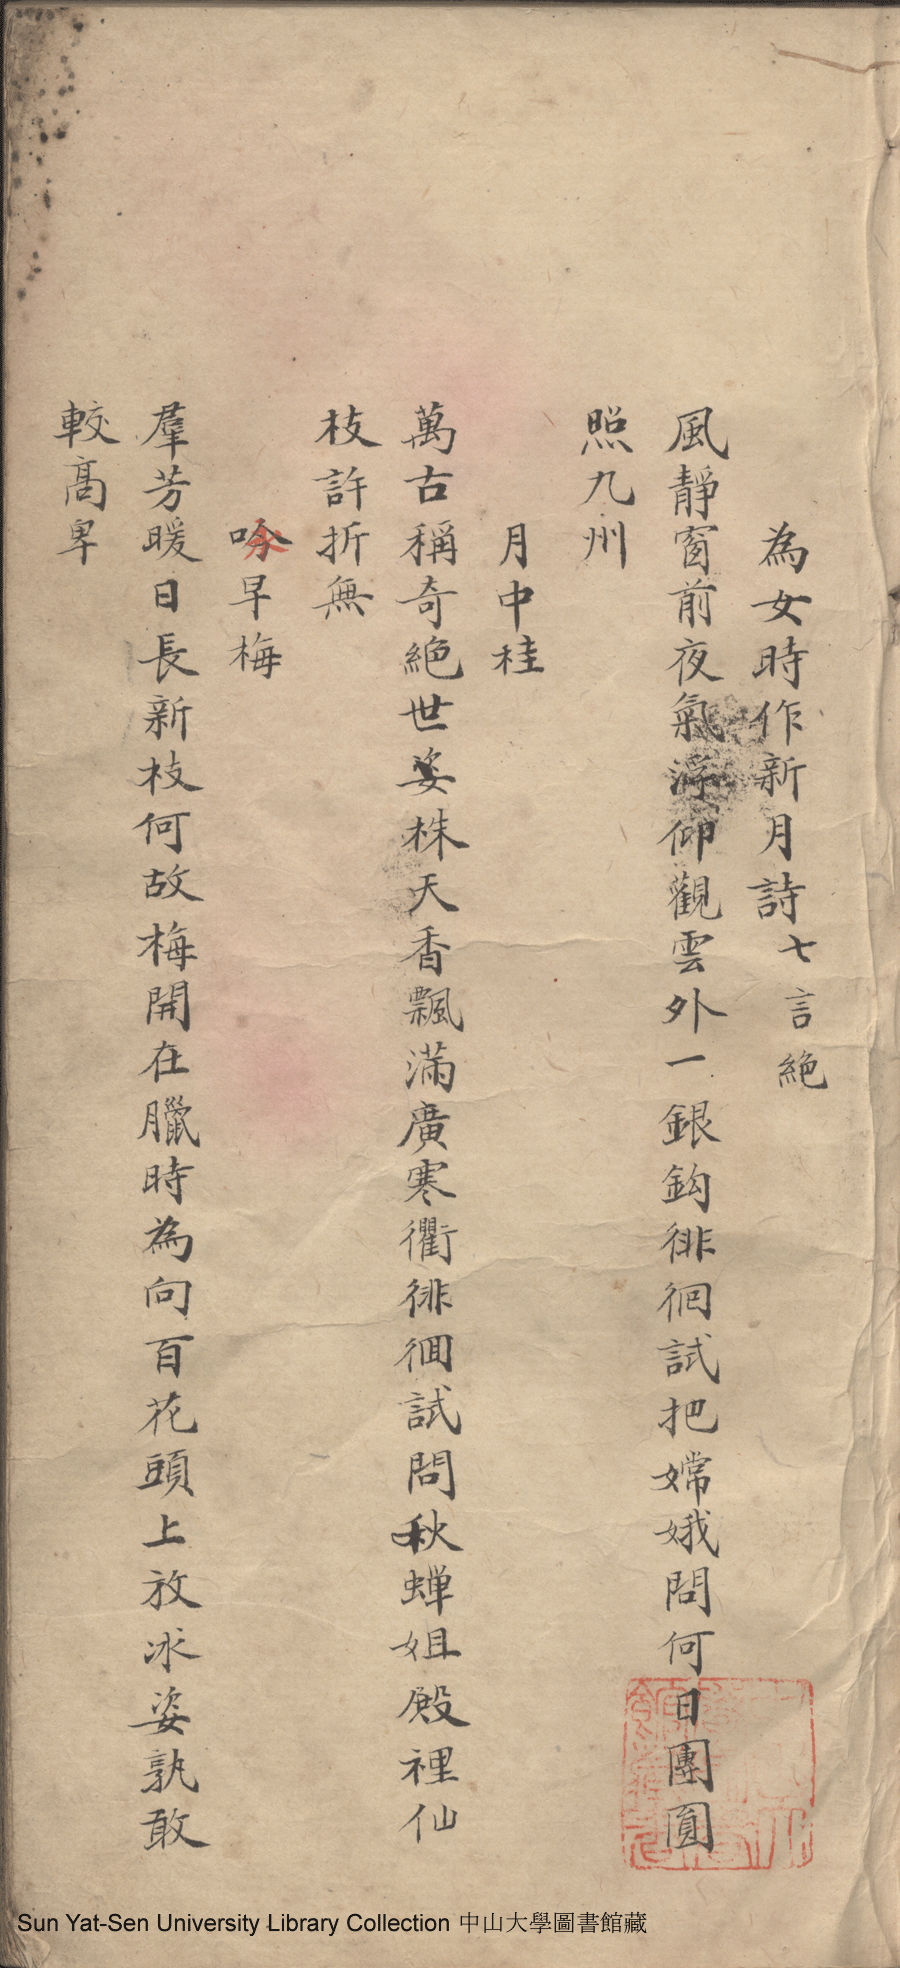 為女時作新月詩七言絕
風靜窗前夜氣浮仰觀雲外一銀鈎徘徊試把嫦娥問何日團圓
照九州
月中桂
萬古稱奇絕世姿株天香飄滿廣寒衢徘徊試問秋蟬姐殿裡仙
枝許折無
早梅
羣芳暖日長新枝何故梅開在臘時為向百花頭上放冰姿孰敢
較高卑
Sun Yat-Sen University Library Collection 中山大學圖書館藏